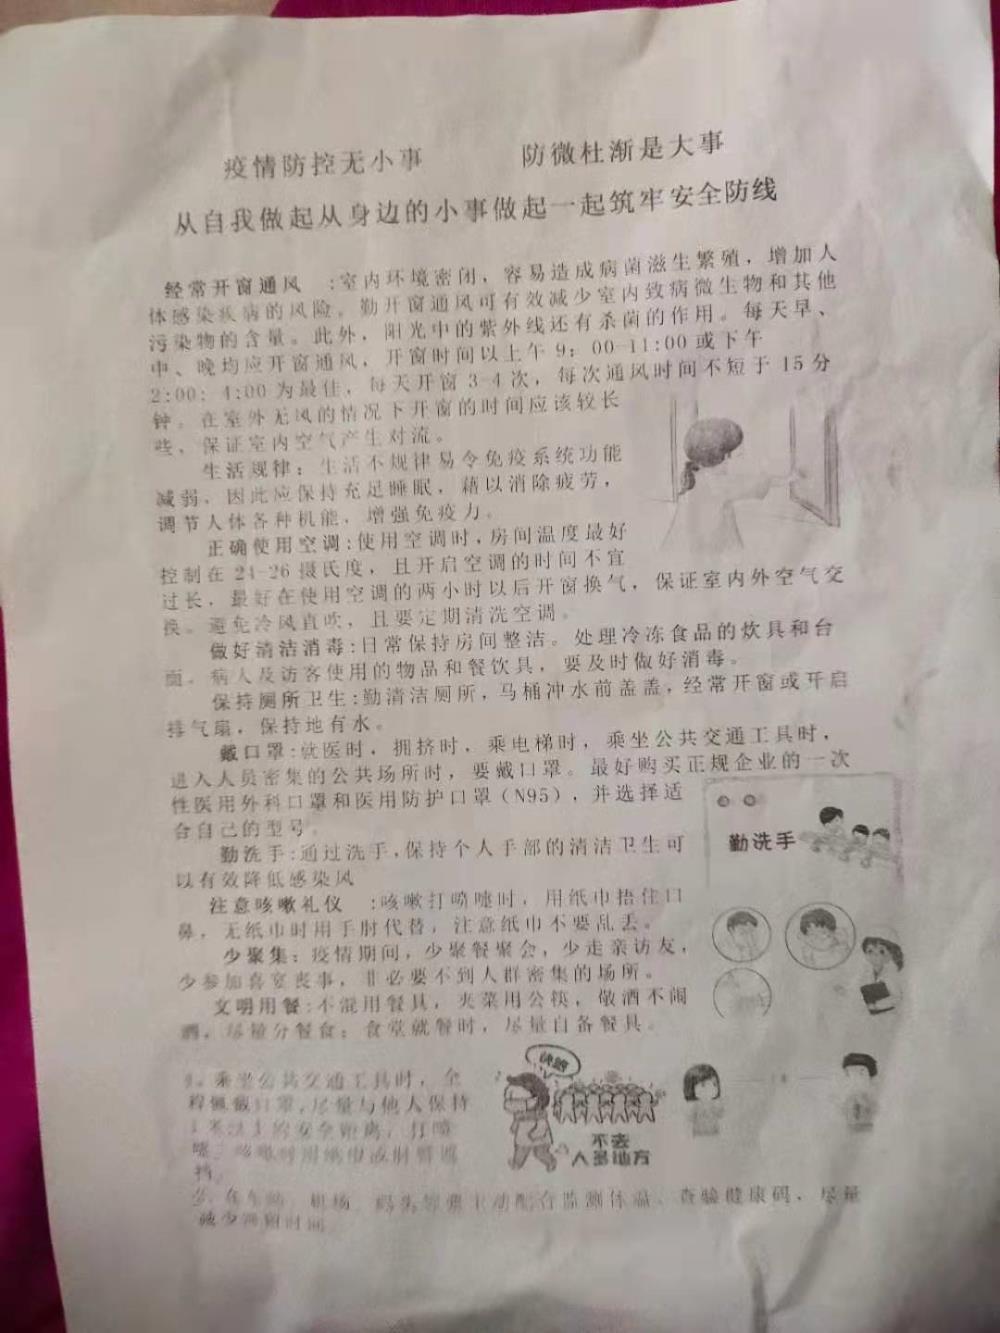 疫情防控无小事 防微杜渐是大事
从自我做起从身边的小事做起一起筑牢安全防线
经常开窗通风 :室内环境密闭，容易造成病菌滋生繁殖，增加人
体感染疾病的风险。勤开窗通风可有效减少室内致病微生物和其他
污染物的含量。此外，阳光中的紫外线还有杀菌的作用。每天早、
中、晚均应开窗通风，开窗时间以上午 9：00-11:00 或下午
2:00：4:00 为最佳，每天开窗 3-4 次，每次通风时间不短于 15 分
钟。在室外无风的情况下开窗的时间应该较长
些，保证室内空气产生对流。
生活规律：生活不规律易令免疫系统功能
减弱，因此应保持充足睡眠，藉以消除疲劳，
调节人体各种机能，增强免疫力。
正确使用空调:使用空调时,房间温度最好
控制在 24-26 摄氏度，且开启空调的时间不宜
过长，最好在使用空调的两小时以后开窗换气，保证室内外空气交
换。避免冷风直吹，且要定期清洗空调。
做好清洁消毒:日常保持房间整洁。处理冷冻食品的炊具和台
面，病人及访客使用的物品和餐饮具，要及时做好消毒。
保持厕所卫生:勤清洁厕所,马桶冲水前盖盖,经常开窗或开启
排气扇，保持地有水。
戴口罩:就医时，拥挤时，乘电梯时，乘坐公共交通工具时，
进入人员密集的公共场所时，要戴口罩。最好购买正规企业的一次
性医用外科口罩和医用防护口罩（N95），并选择适
合自己的型号。
勤洗手
勤洗手:通过洗手,保持个人手部的清洁卫生可
以有效降低感染风
注意咳嗽礼仪 :咳嗽打喷嚏时，用纸巾捂住口
鼻，无纸巾时用手肘代替，注意纸巾不要乱丢。
少聚集：疫情期间，少聚餐聚会，少走亲访友，
少参加喜宴丧事，非必要不到人群密集的场所。
文明用餐:不混用餐具，夹菜用公筷，敬酒不闹
酒，尽量分餐食；食堂就餐时，尽量自备餐具。
乘坐公共交通工具时，全
程佩戴口罩,尽量与他人保持
1 米以上的安全距离，打喷
嚏、咳嗽时用纸巾或肘臂遮
挡。
快跑
不去
人多地方
在车站、机场、码头等要主动配合监测体温、查验健康码，尽量
减少滞留时间